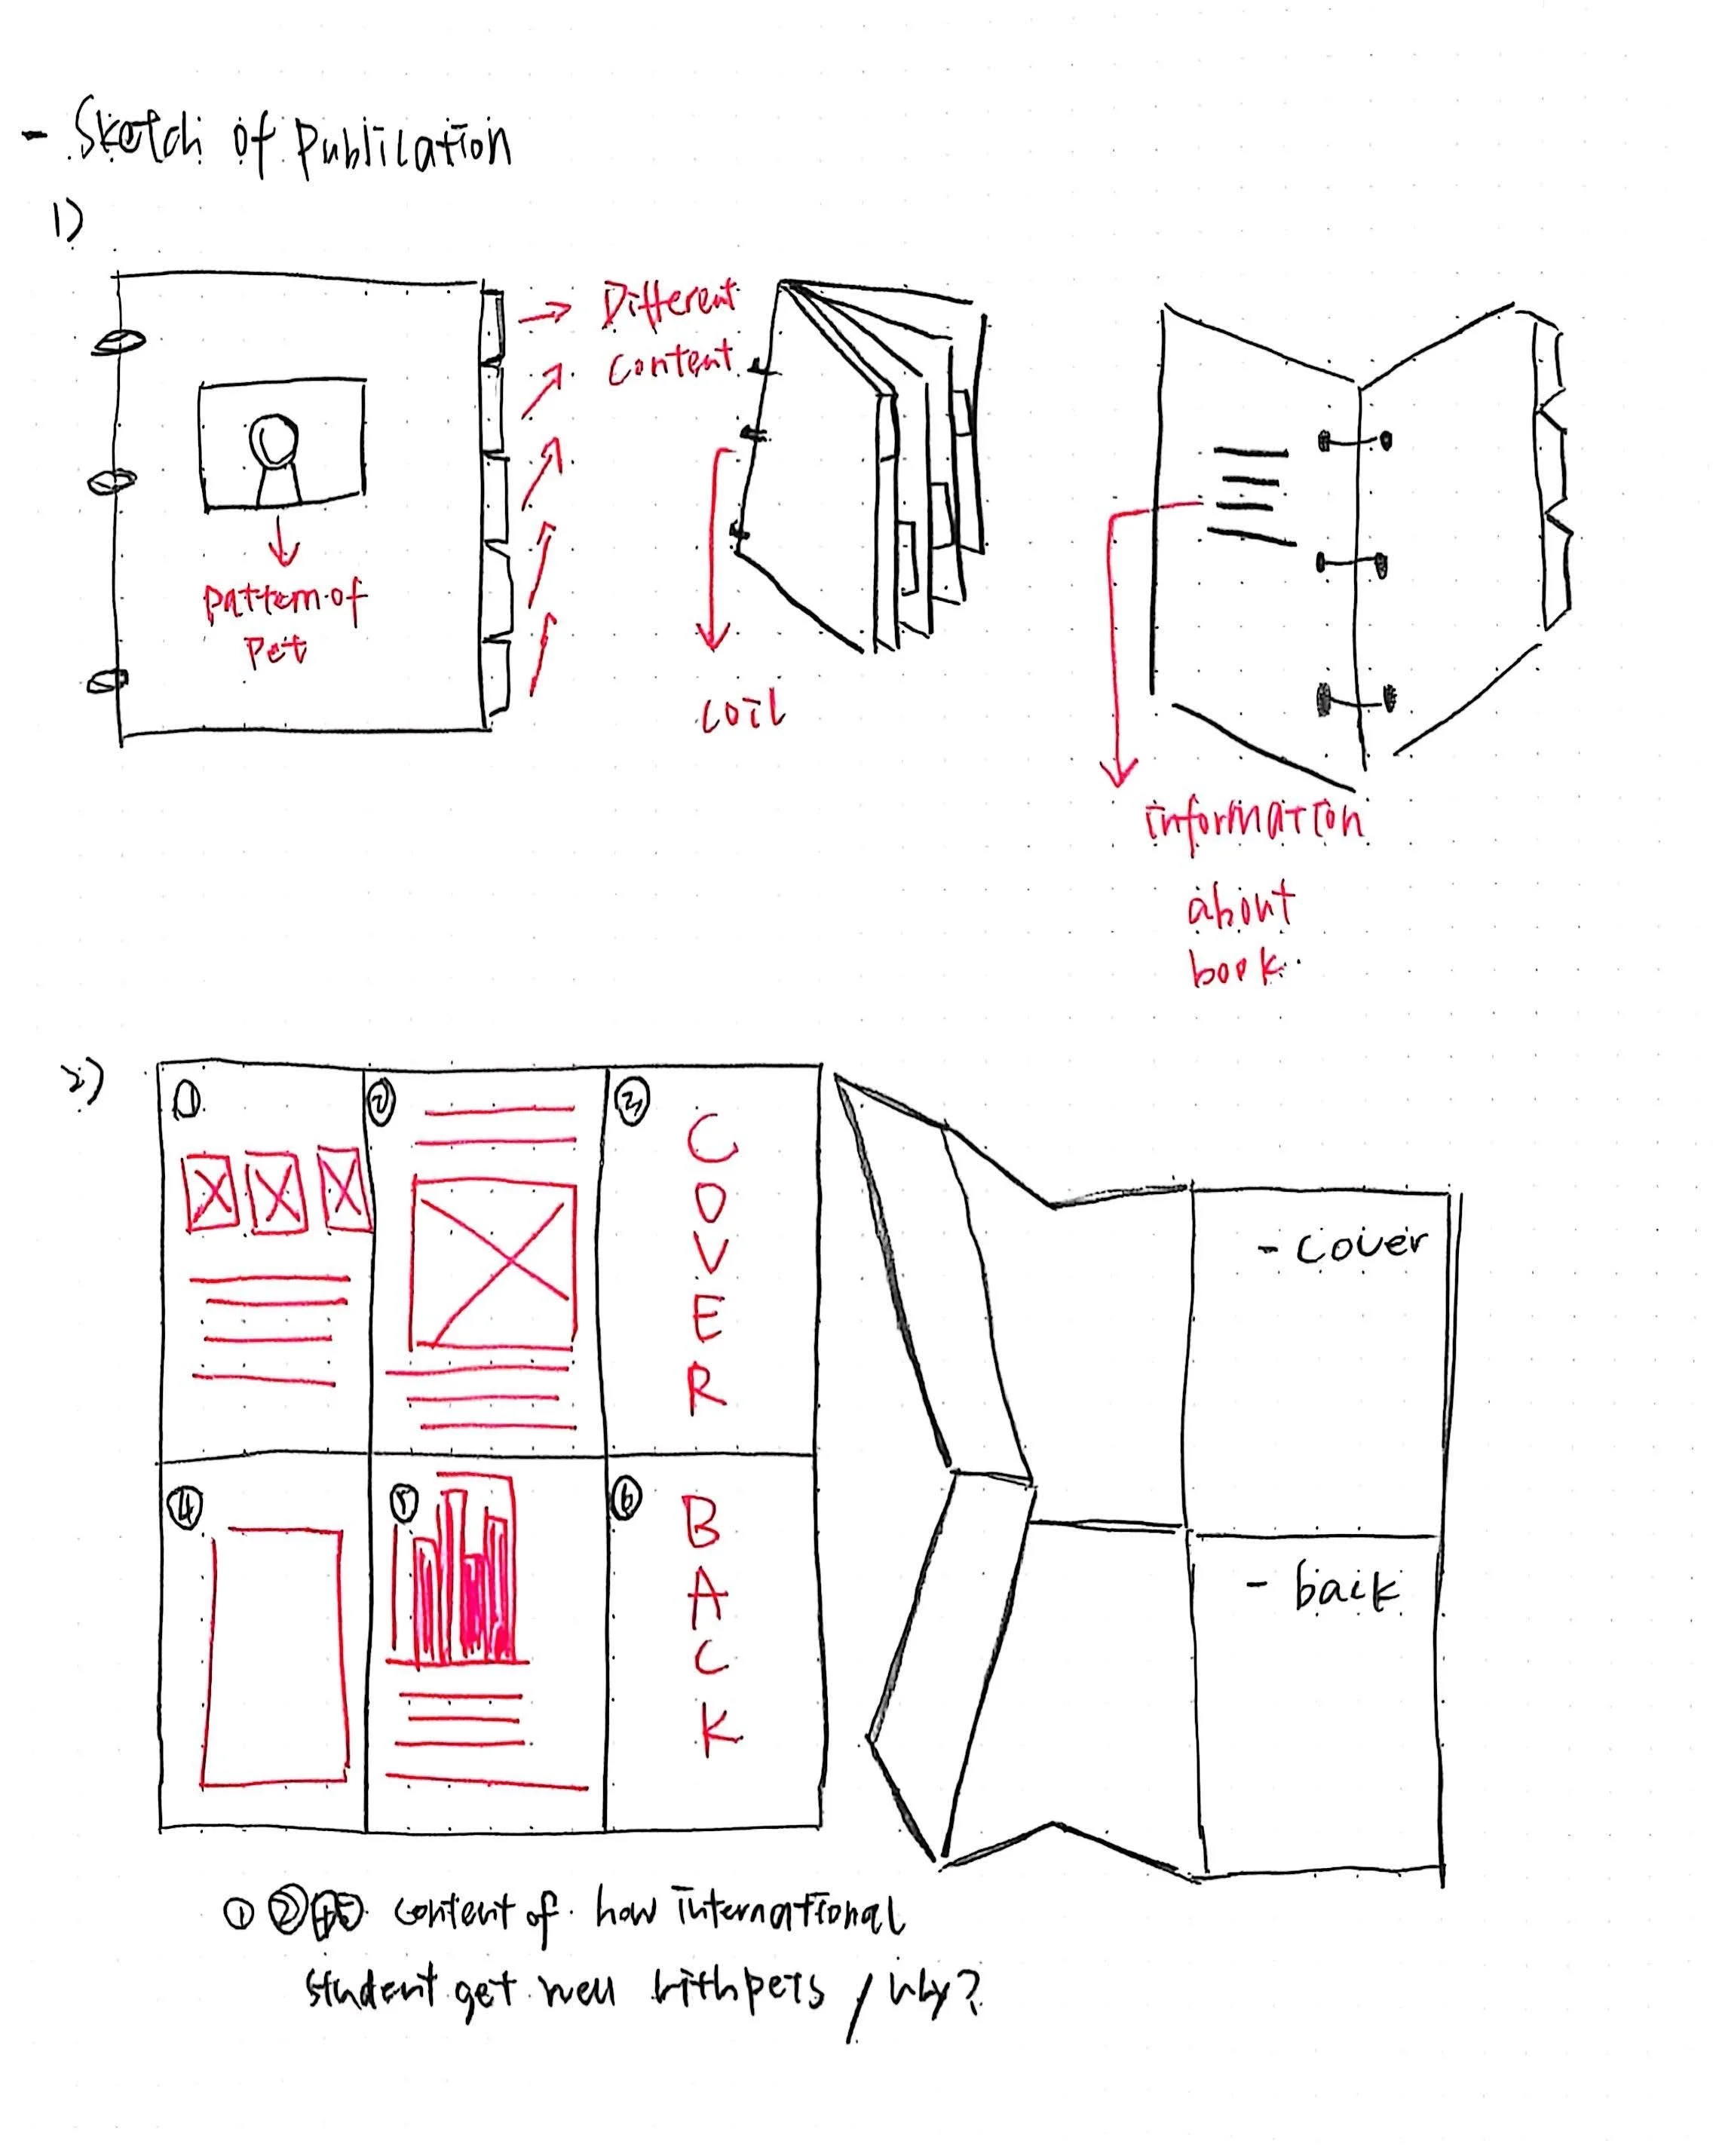 - Sketch of publication
1)
Different
content
pattern of
pet
coil
information
about
book
2)
①
②
③
COVER
- cover
④
⑤
⑥
BACK
- back
① ② content of how international
student get well with pets / why?